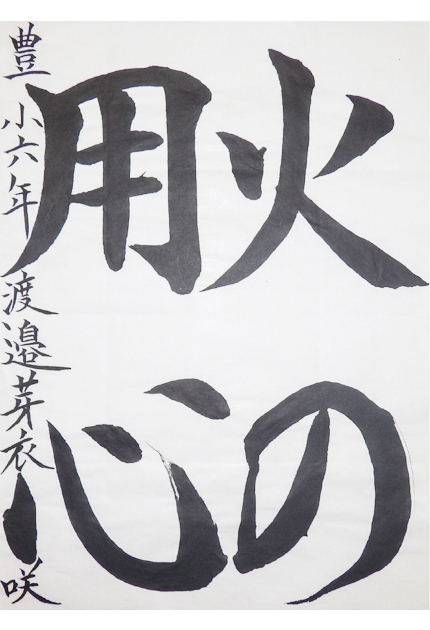 火の
用心
豊 小六年 渡邊芽衣咲